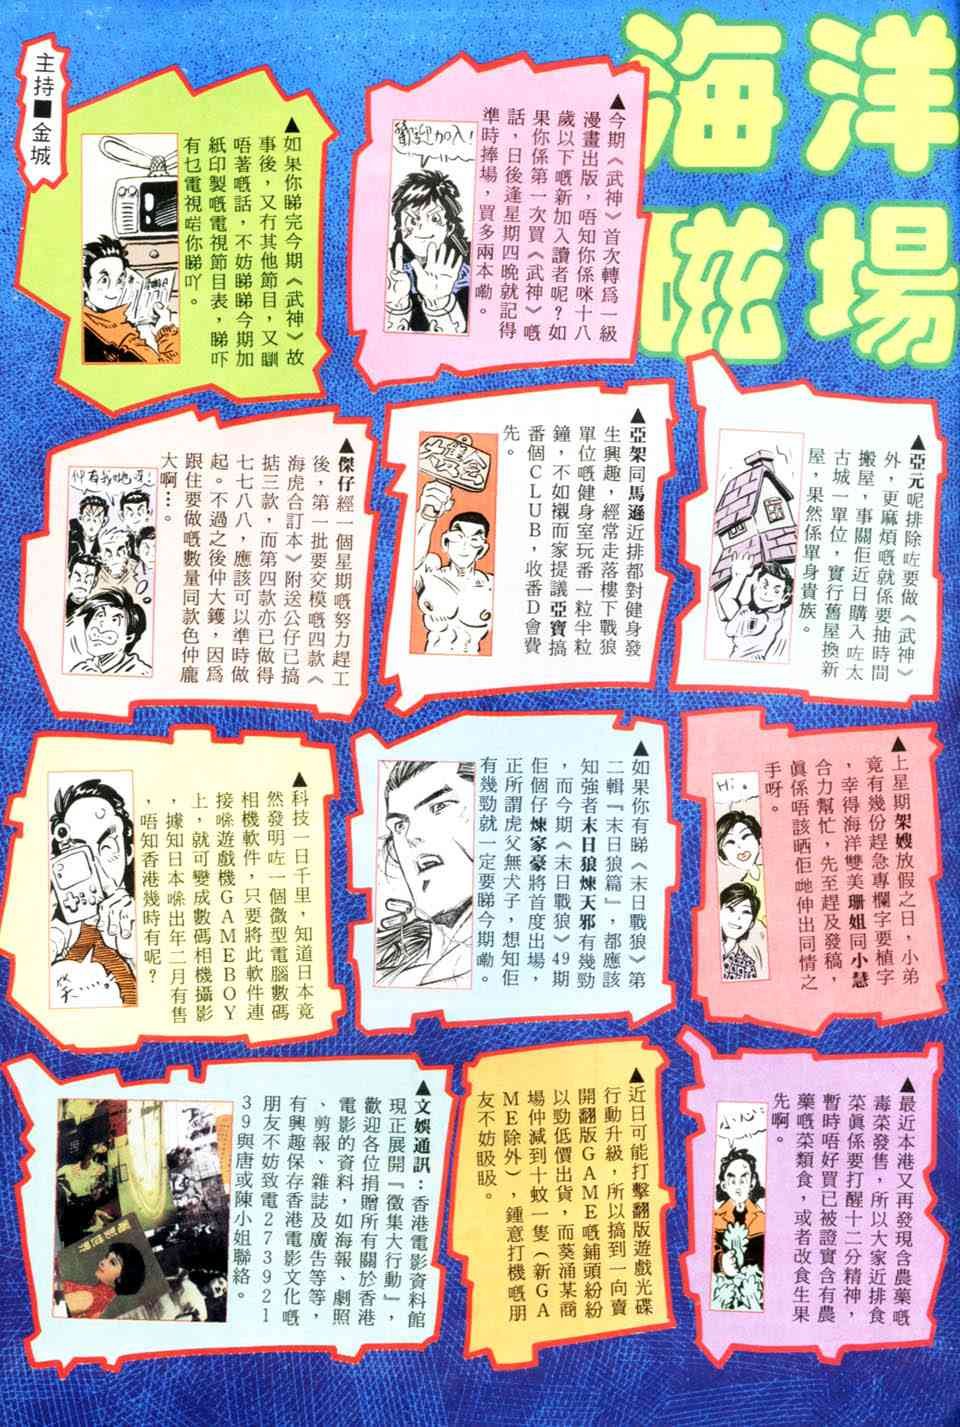 海洋
磁場
主持■金城
▲今期《武神》首次轉爲一級
漫畫出版，唔知你係咪十八
歲以下嘅新加入讀者呢？如
果你係第一次買《武神》嘅
話，日後逢星期四晚就記得
準時捧場，買多兩本嘞。
歡迎加入！
▲如果你睇完今期《武神》故
事後，又冇其他節目，又瞓
唔著嘅話，不妨睇睇今期加
紙印製嘅電視節目表，睇吓
有乜電視啱你睇吖。
▲亞元呢排除咗要做《武神》
外，更麻煩嘅就係要抽時間
搬屋，事關佢近日購入咗太
古城一單位，實行舊屋換新
屋，果然係單身貴族。
▲亞架同馬遜近排都對健身發
生興趣，經常走落樓下戰狼
單位嘅健身室玩番一粒半粒
鐘，不如襯而家提議亞寶搞
番個CLUB，收番D會費
先。
▲傑仔經一個星期嘅努力趕工
後，第一批要交模嘅四款《
海虎合訂本》附送公仔已搞
掂三款，而第四款亦已做得
七七八八，應該可以準時做
起。不過之後仲大鑊，因爲
跟住要做嘅數量同款色仲龐
大啊…。
仲有我哋呀！
▲上星期架嫂放假之日，小弟
竟有幾份趕急專欄字要植字
，幸得海洋雙美珊姐同小慧
合力幫忙，先至趕及發稿，
眞係唔該晒佢哋伸出同情之
手呀。
Hi。
▲如果你有睇《末日戰狼》第
二輯『末日狼篇』，都應該
知強者末日狼煉天邪有幾勁
，而今期《末日戰狼》49期
佢個仔煉家豪將首度出場，
正所謂虎父無犬子，想知佢
有幾勁就一定要睇今期嘞。
▲科技一日千里，知道日本竟
然發明咗一個微型電腦數碼
相機軟件，只要將此軟件連
接喺遊戲機GAMEBOY
上，就可變成數碼相機攝影
，據知日本喺出年二月有售
，唔知香港幾時有呢？
笑…。
▲最近本港又再發現含農藥嘅
毒菜發售，所以大家近排食
菜眞係要打醒十二分精神，
暫時唔好買已被證實含有農
藥嘅菜類食，或者改食生果
先啊。
小心！
▲近日可能打擊翻版遊戲光碟
行動升級，所以搞到一向賣
開翻版GAME嘅鋪頭紛紛
以勁低價出貨，而葵涌某商
場仲減到十蚊一隻（新GA
ME除外），鍾意打機嘅朋
友不妨吸吸。
▲文娛通訊：香港電影資料館
現正展開『徵集大行動』，
歡迎各位捐贈所有關於香港
電影的資料，如海報、劇照
、剪報、雜誌及廣告等等，
有興趣保存香港電影文化嘅
朋友不妨致電273921
39與唐或陳小姐聯絡。